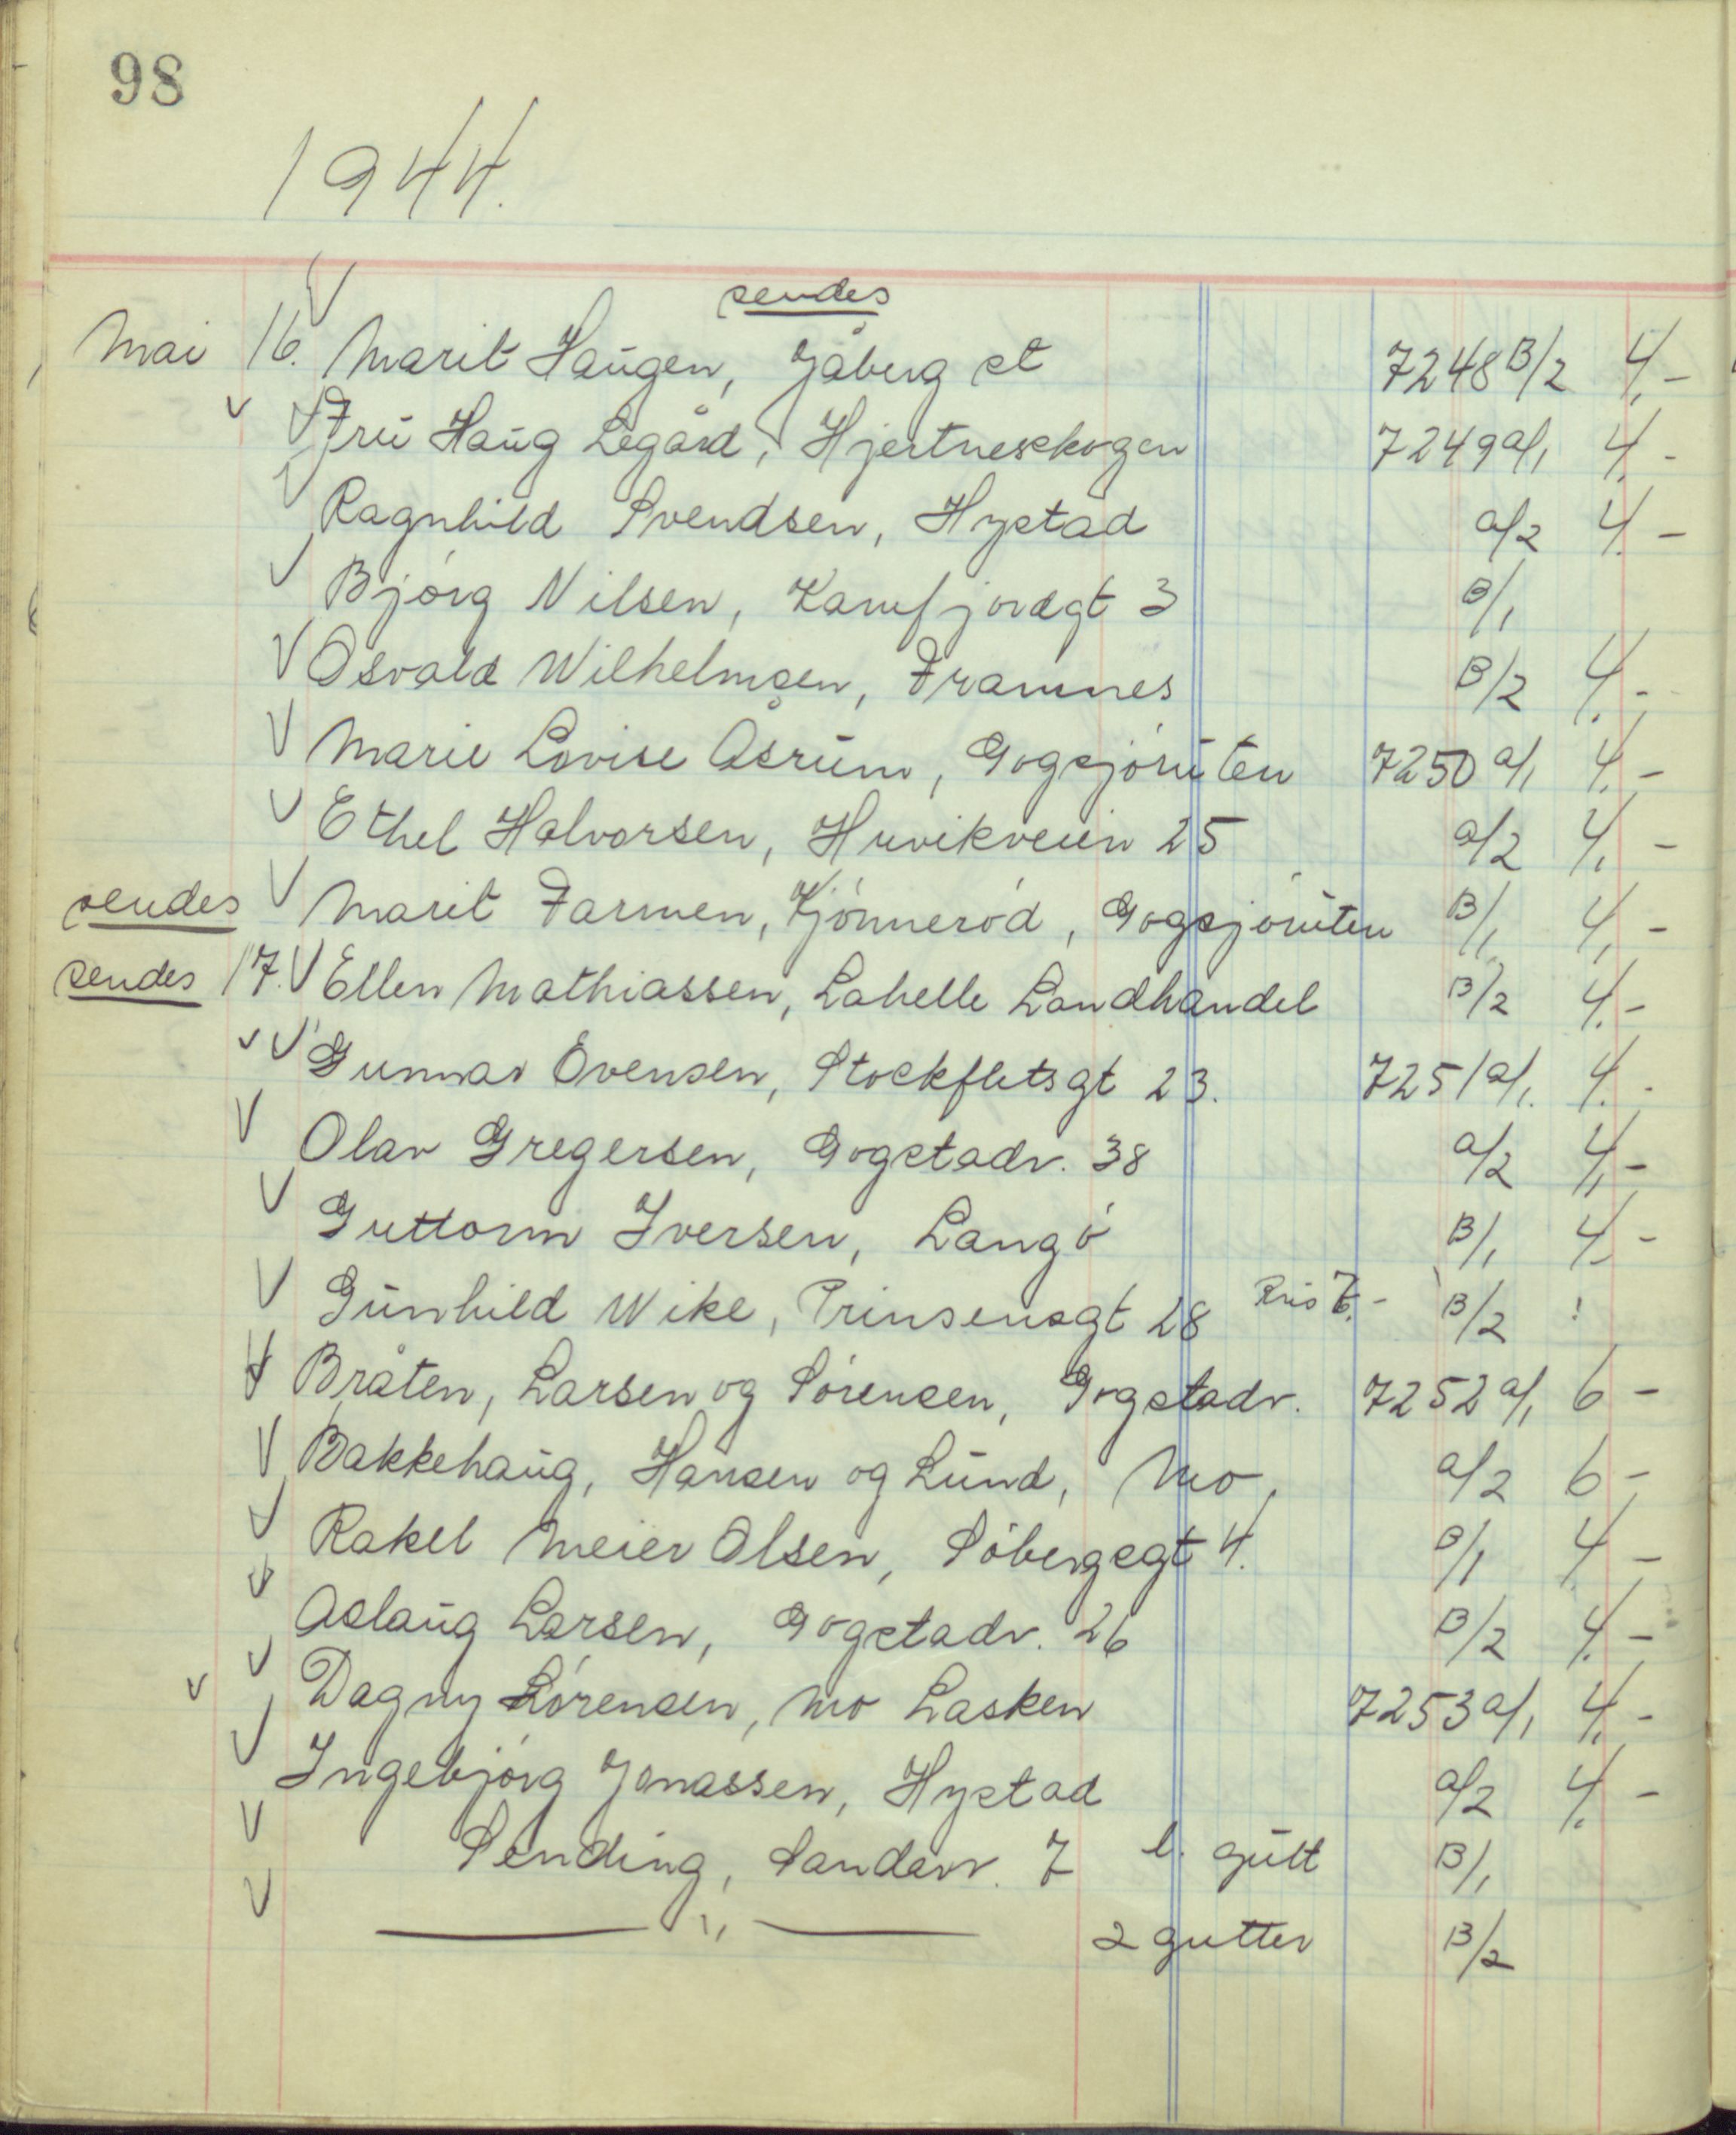 98
1944.
sendes
Mai 16. Marit Haugen, Jåberg st 7248 B/2 4,-
Fru Haug Legård, Hjertnesskogen 7249 a/1 4.-
Ragnhild Svendsen, Hystad a/2 4.-
Bjørg Nilsen, Kamfjordgt 3 B/1
Osvald Wilhelmsen, Framnes B/2 4.-
Marie Lovise Åsrum, Gogsjøruten 7250 a/1 4.-
Ethel Halvorsen, Huvikveien 25 a/2 4,-
sendes Marit Farmen, Kjønnerød, Gogsjøruten B/1 4,-
sendes 17. Ellen Mathiassen, Lahelle Landhandel B/2 4.-
Gunnar Evensen, Stockfletsgt 23. 7251 a/1. 4.-
Olav Gregersen, Gogstadv. 38 a/2 4,-
Guttorm Iversen, Langø B/1 4.-
Gunhild Wike, Prinsensgt 28 B/2
Bråten, Larsen og Sørensen, Gogstadv. 7252 a/1 6-
Bakkehaug, Hansen og Lund, Mo. a/2 6-
Rakel Meier Olsen, Søbergsgt 4. B/1 4.-
Aslaug Larsen, Gogstadv. 26 B/2 4.-
Dagny Sørensen, Mo Lasken 7253 a/1 4.-
Ingebjørg Jonassen, Hystad a/2 4.-
Sending, Sandarv. 7 l. gutt B/1
— " — 2 gutter B/2